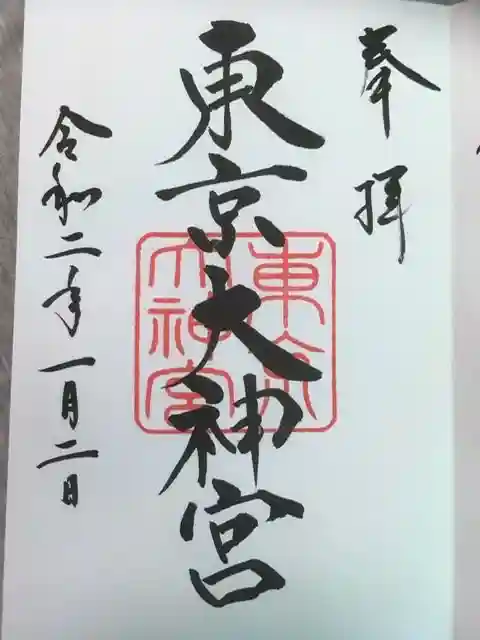 奉拝
東京大神宮
東京
大神宮
令和二年一月二日